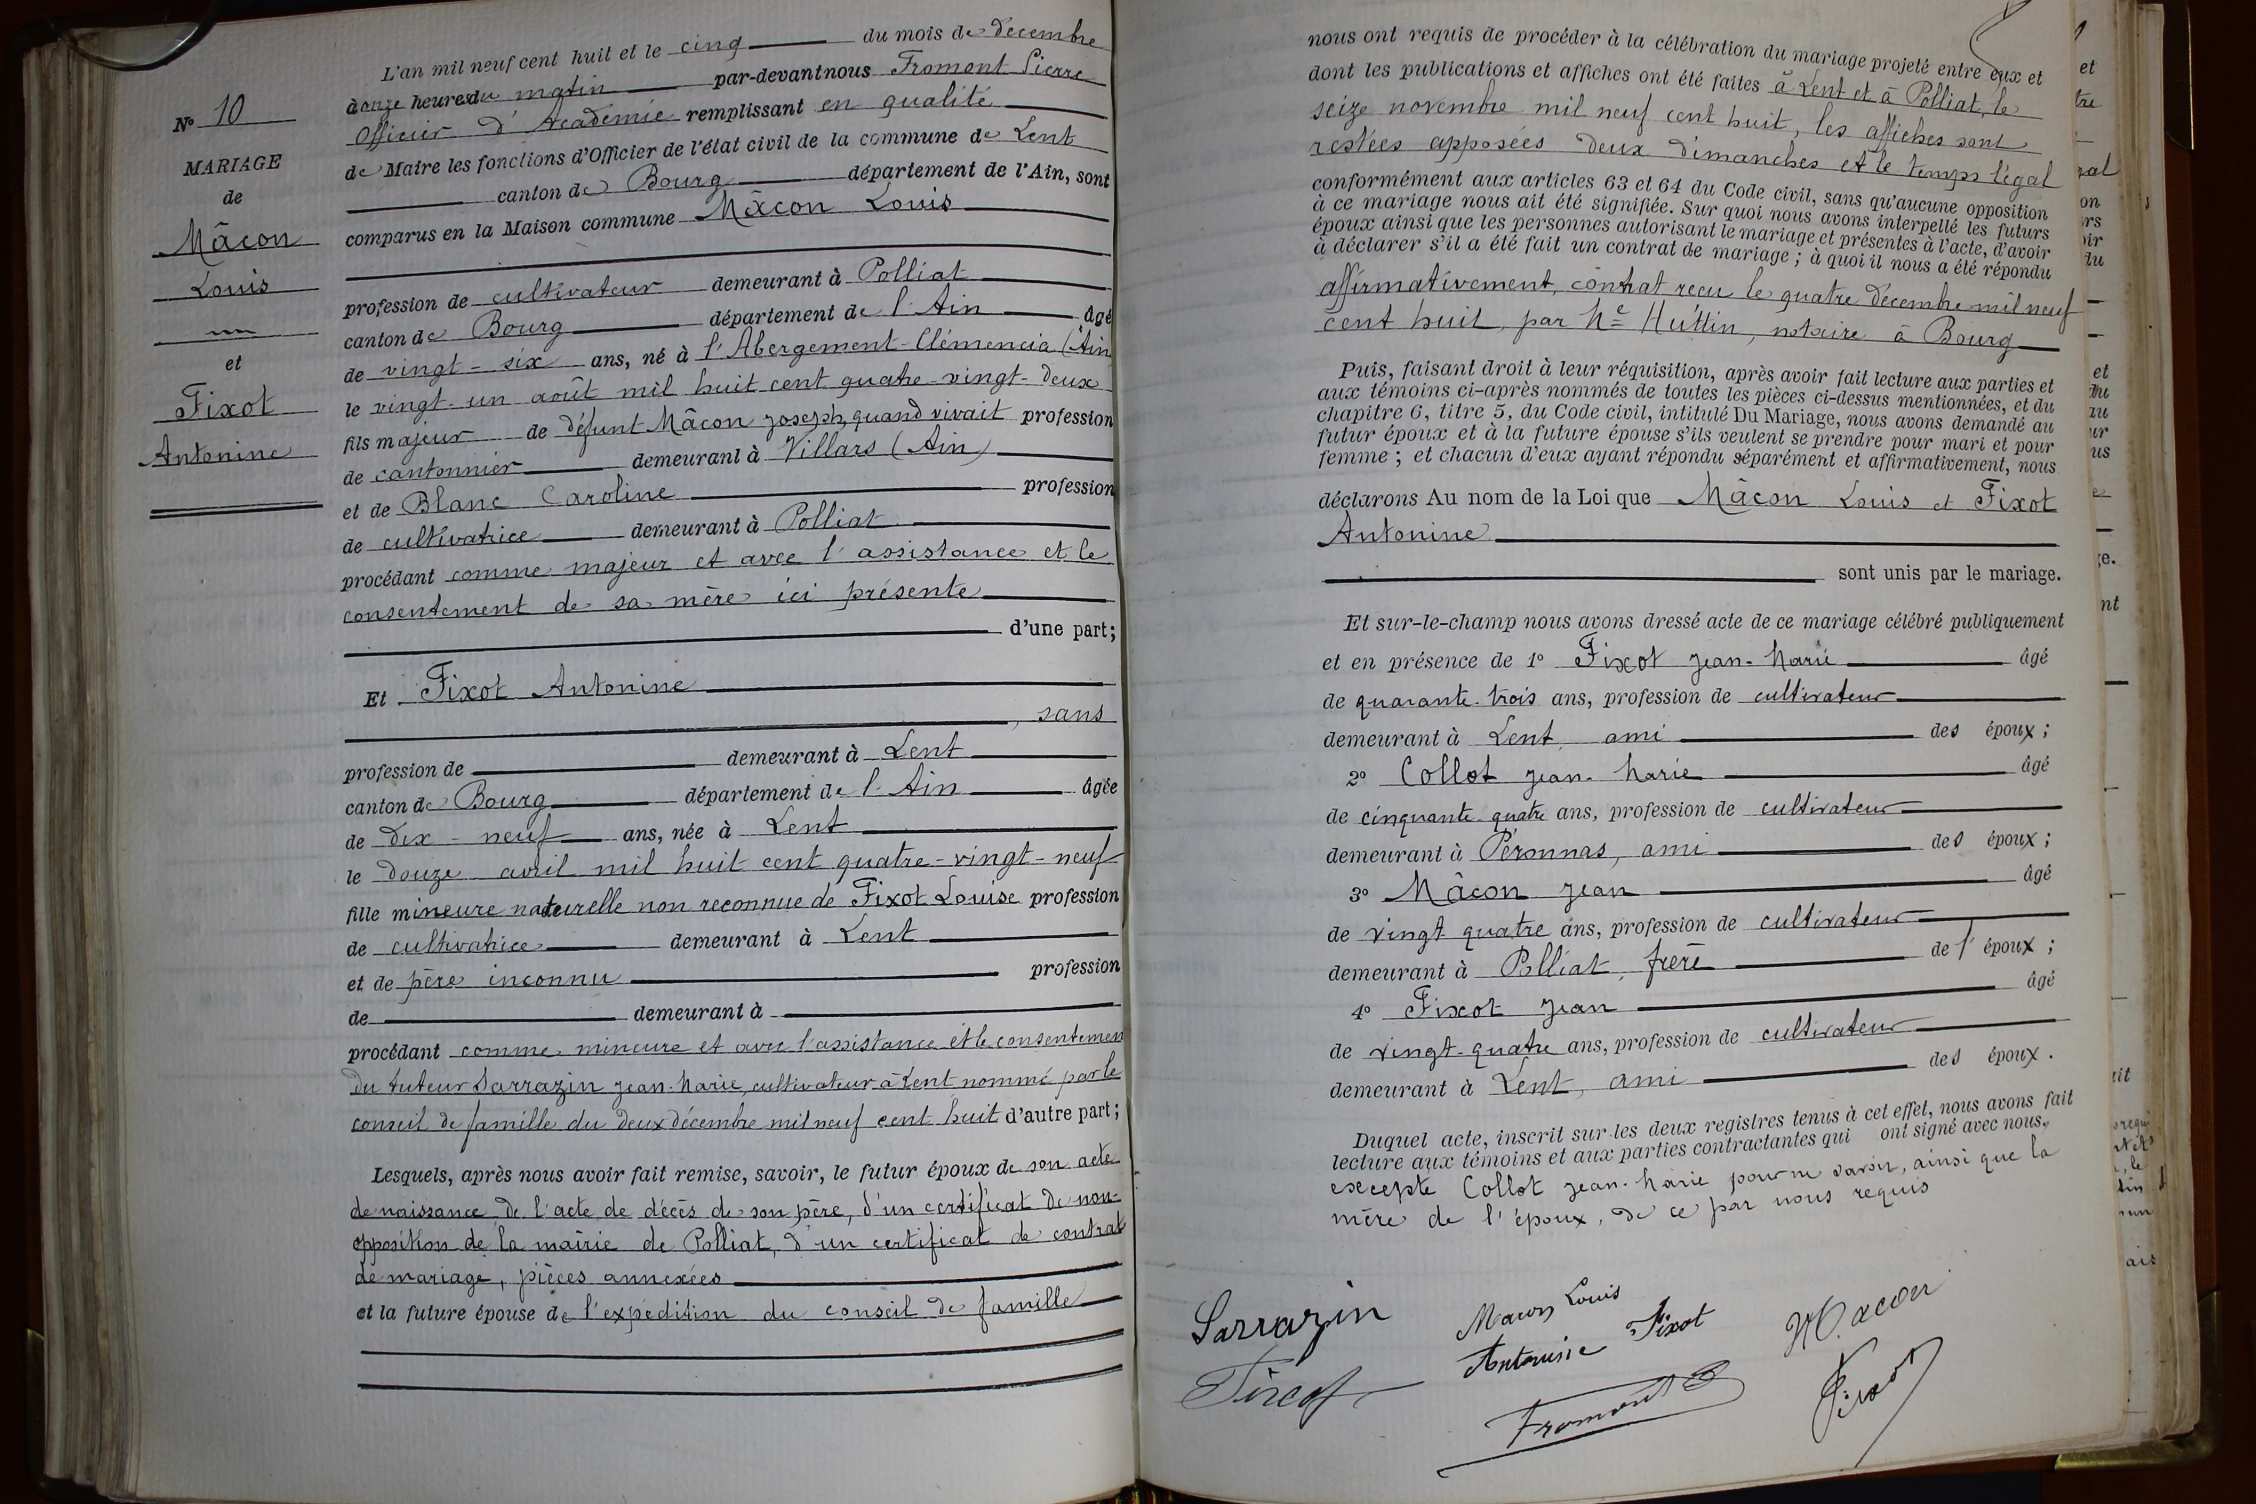 N° 10
MARIAGE
de
Mâcon
Louis
et
Fixot
Antonine
L'an mil neuf cent huit et le cinq du mois de décembre
à onze heures du matin par-devant nous Fromont Pierre
Officier d'Académie remplissant en qualité
de Maire les fonctions d'Officier de l'état civil de la commune de Lent
canton de Bourg département de l'Ain, sont
comparus en la Maison commune Mâcon Louis
profession de cultivateur demeurant à Polliat
canton de Bourg département de l'Ain âgé
de vingt-six ans, né à l'Abergement-Clémencia (Ain
le vingt-un août mil huit cent quatre-vingt-deux
fils majeur de défunt Mâcon Joseph, quand vivait profession
de cantonnier demeurant à Villars (Ain)
et de Blanc Caroline profession
de cultivatrice demeurant à Polliat
procédant comme majeur et avec l'assistance et le
consentement de sa mère ici présente
d'une part;
Et Fixot Antonine
, sans
profession de demeurant à Lent
canton de Bourg département de l'Ain âgée
de dix-neuf ans, née à Lent
le douze avril mil huit cent quatre-vingt-neuf
fille mineure naturelle non reconnue de Fixot Louise profession
de cultivatrice demeurant à Lent
et de père inconnu profession
de demeurant à
procédant comme mineure et avec l'assistance et le consentemen
du tuteur Sarrazin Jean-Marie, cultivateur à Lent nommé par le
conseil de famille du deux décembre mil neuf cent huit d'autre part;
Lesquels, après nous avoir fait remise, savoir, le futur époux de son acte
de naissance de l'acte de décès de son père, d'un certificat de non-
opposition de la mairie de Polliat, d'un certificat de contrat
de mariage, pièces annexées
et la future épouse de l'expédition du conseil de famille
nous ont requis de procéder à la célébration du mariage projeté entre eux et
dont les publications et affiches ont été faites à Lent et à Polliat, le
seize novembre mil neuf cent huit, les affiches sont
restées apposées deux dimanches et le temps légal
conformément aux articles 63 et 64 du Code civil, sans qu'aucune opposition
à ce mariage nous ait été signifiée. Sur quoi nous avons interpellé les futurs
époux ainsi que les personnes autorisant le mariage et présentes à l'acte, d'avoir
à déclarer s'il a été fait un contrat de mariage ; à quoi il nous a été répondu
affirmativement, contrat reçu le quatre décembre mil neuf
cent huit, par Me Huttin, notaire à Bourg
Puis, faisant droit à leur réquisition, après avoir fait lecture aux parties et
aux témoins ci-après nommés de toutes les pièces ci-dessus mentionnées, et du
chapitre 6, titre 5, du Code civil, intitulé Du Mariage, nous avons demandé au
futur époux et à la future épouse s'ils veulent se prendre pour mari et pour
femme ; et chacun d'eux ayant répondu séparément et affirmativement, nous
déclarons Au nom de la Loi que Mâcon Louis et Fixot
Antonine
sont unis par le mariage.
Et sur-le-champ nous avons dressé acte de ce mariage célébré publiquement
et en présence de 1° Fixot Jean-Marie âgé
de quarante-trois ans, profession de cultivateur
demeurant à Lent, ami des époux ;
2° Collot Jean-Marie âgé
de cinquante-quatre ans, profession de cultivateur
demeurant à Péronnas, ami des époux ;
3° Mâcon Jean âgé
de vingt quatre ans, profession de cultivateur
demeurant à Polliat, frère de l'époux ;
4° Fixot Jean âgé
de vingt-quatre ans, profession de cultivateur
demeurant à Lent, ami des époux.
Duquel acte, inscrit sur les deux registres tenus à cet effet, nous avons fait
lecture aux témoins et aux parties contractantes qui ont signé avec nous,
excepté Collot Jean-Marie pour ne savoir, ainsi que la
mère de l'époux, de ce par nous requis
Sarrazin
Macon Louis
Macon
Antonine Fixot
Fixot
Fromont
Fixot